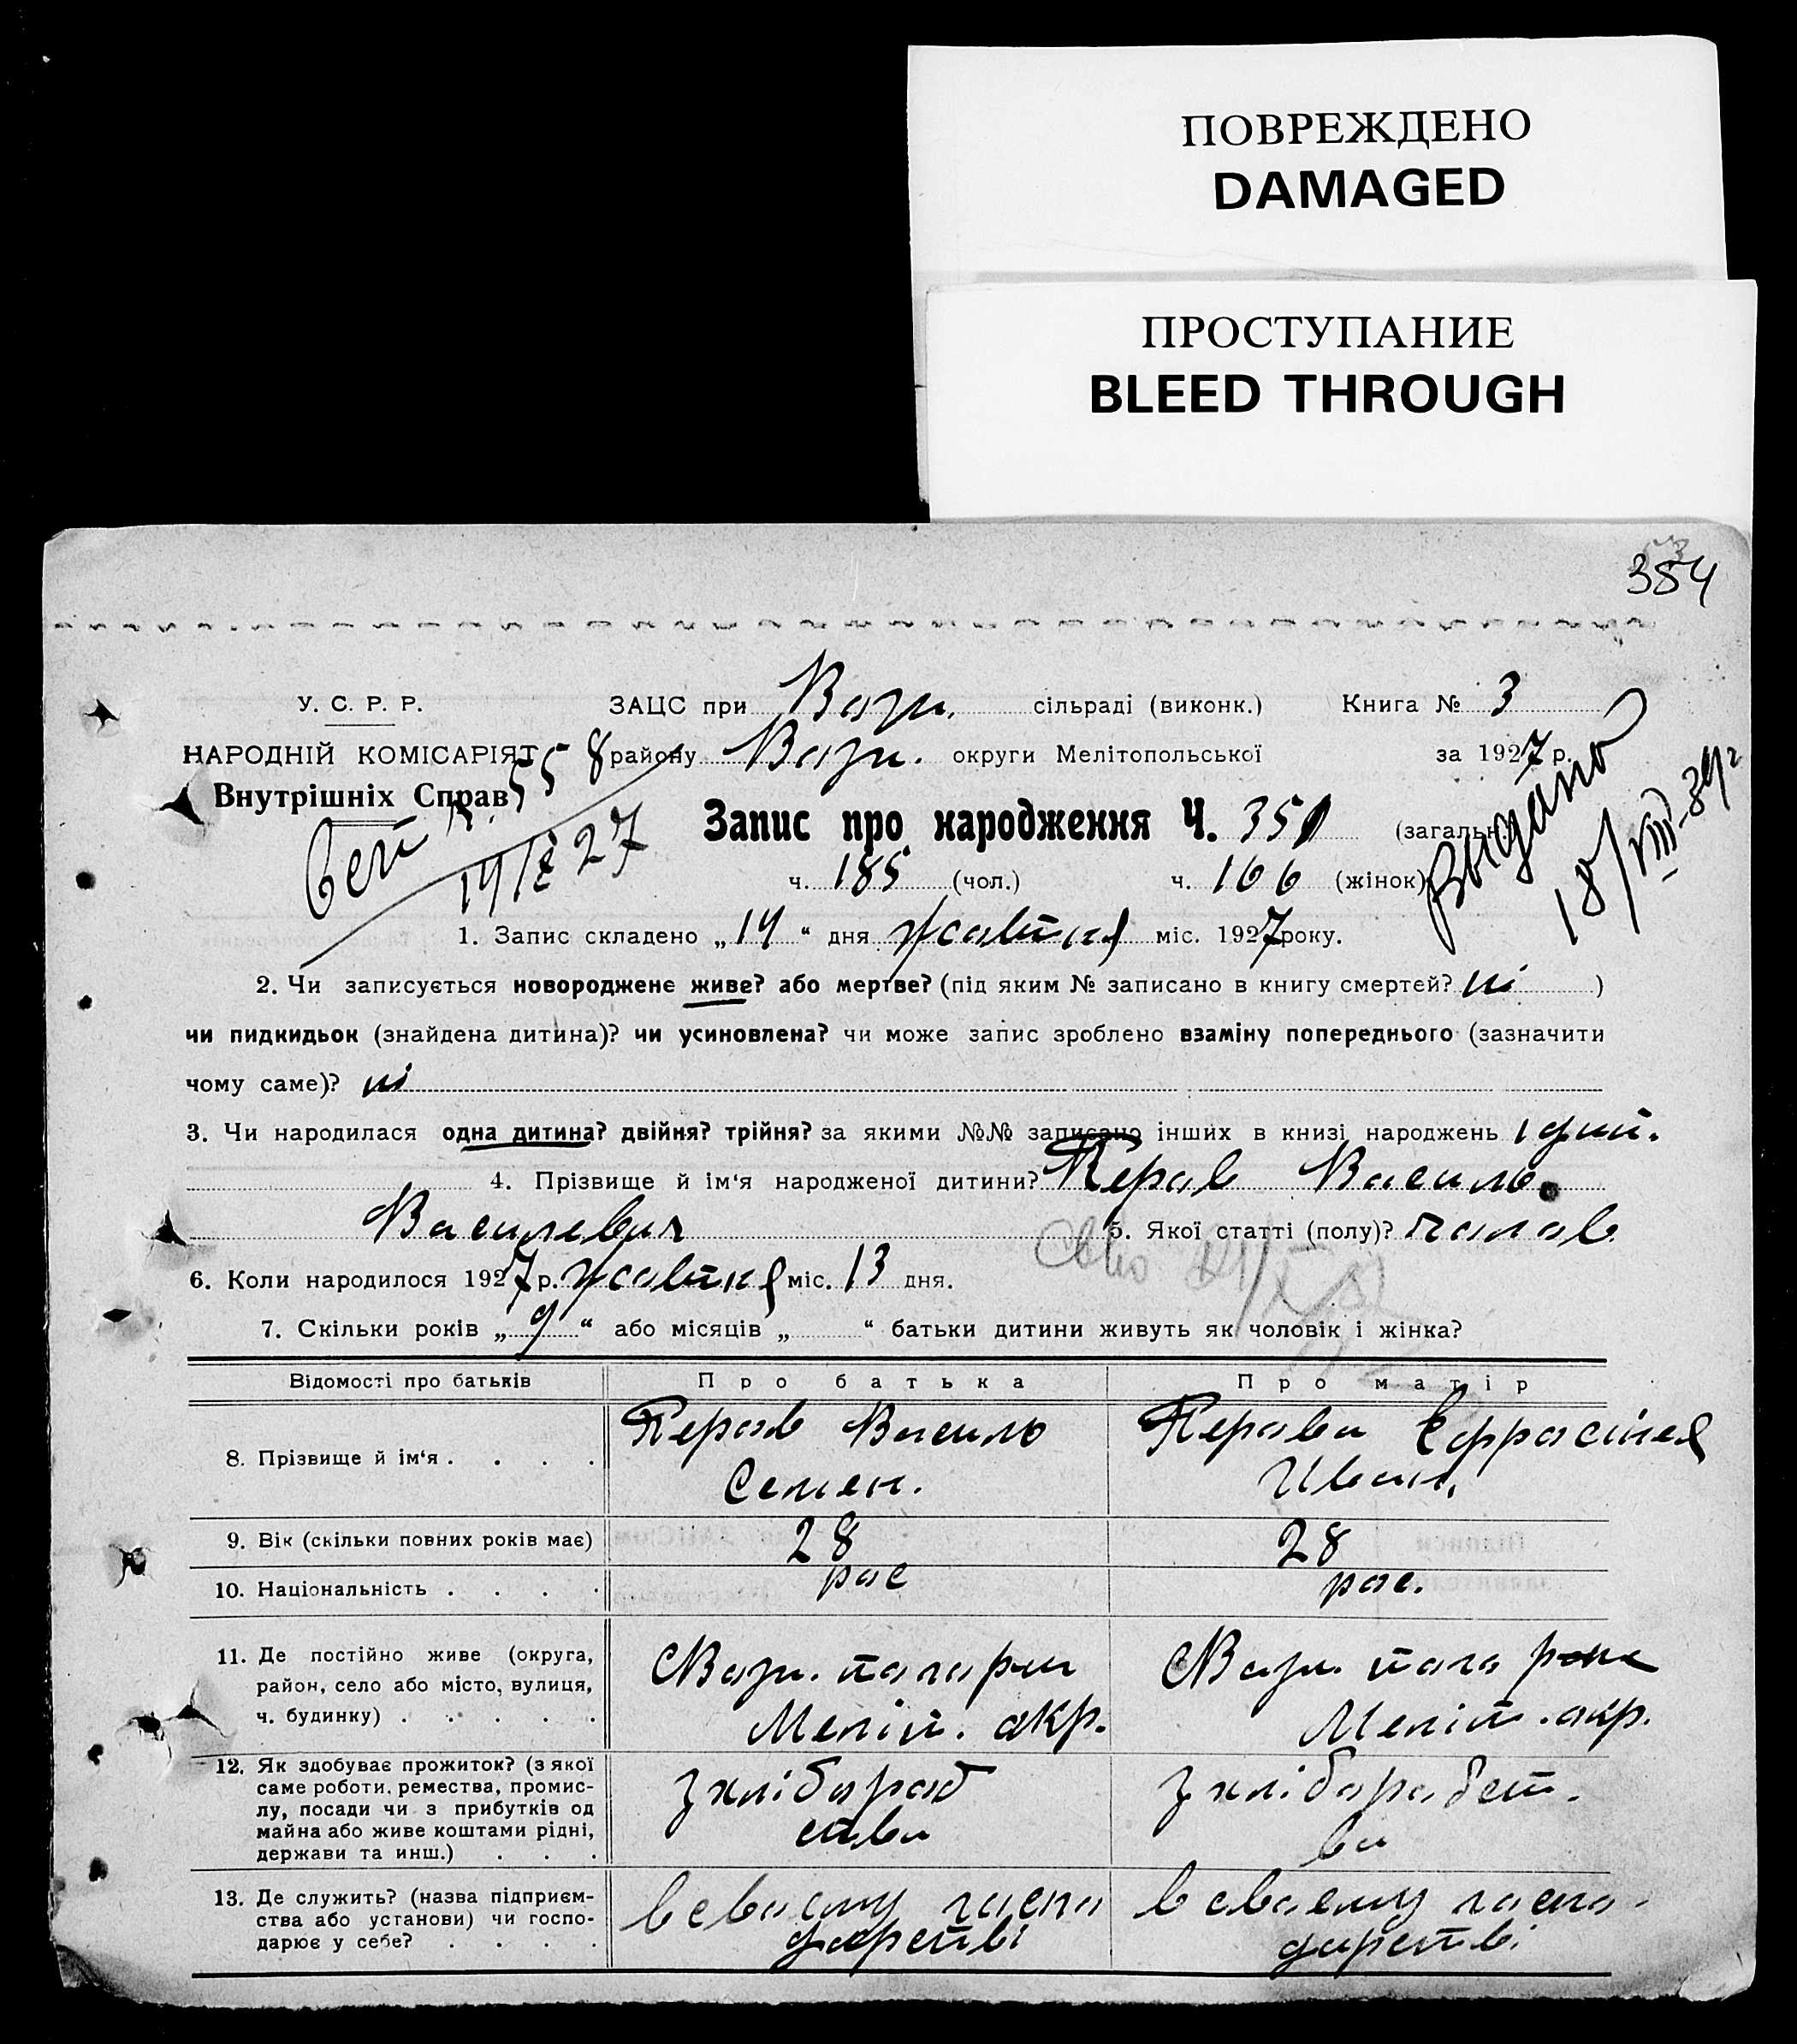 ПОВРЕЖДЕНО
DAMAGED
ПРОСТУПАНИЕ
BLEED THROUGH
354
У. С. Р. Р. ЗАЦС при Возн. сільраді (виконк.) Книга № 3
НАРОДНІЙ КОМІСАРІЯТ району Возн. округи Мелітопольської за 1927 р.
Внутрішніх Справ
558
14/X 27
Выдано
18/VIII-39г
Запис про народження Ч. 351 (загальн.)
ч. 185 (чол.) ч. 166 (жінок)
1. Запис складено „14“ дня жовтня міс. 1927 року.
2. Чи записується новороджене живе? або мертве? (під яким № записано в книгу смертей? ні )
чи пидкидьок (знайдена дитина)? чи усиновлена? чи може запис зроблено взаміну попереднього (зазначити
чому саме)? ні
3. Чи народилася одна дитина? двійня? трійня? за якими №№ записано інших в книзі народжень 1
4. Прізвище й ім‘я народженої дитини? Перов Василь
Василевич 5. Якої статті (полу)?
6. Коли народилося 1927 р. жовтня міс. 13 дня.
7. Скільки років „9“ або місяців „ “ батьки дитини живуть як чоловік і жінка?
Відомості про батьків Про батька Про матір
8. Прізвище й ім‘я . . . . Перов Василь Перова Єфросінея
Семен. Иван.
9. Вік (скільки повних років має) 28 28
10. Національність . . . . рос рос.
11. Де постійно живе (округа, район, село або місто, вулиця, ч. будинку) . . . . . Возн. Возн.
Меліт. окр. Меліт. окр.
12. Як здобуває прожиток? (з якої саме роботи, ремества, промис-
лу, посади чи з прибутків од
майна або живе коштами рідні,
держави та инш.) . . .
З хлібороб З хлиборобст.
ства ва
13. Де служить? (назва підприєм-
ства або установи) чи госпо-
дарює у себе? . . . .
в своему госпо в своему госпо-
дарстві дарстві